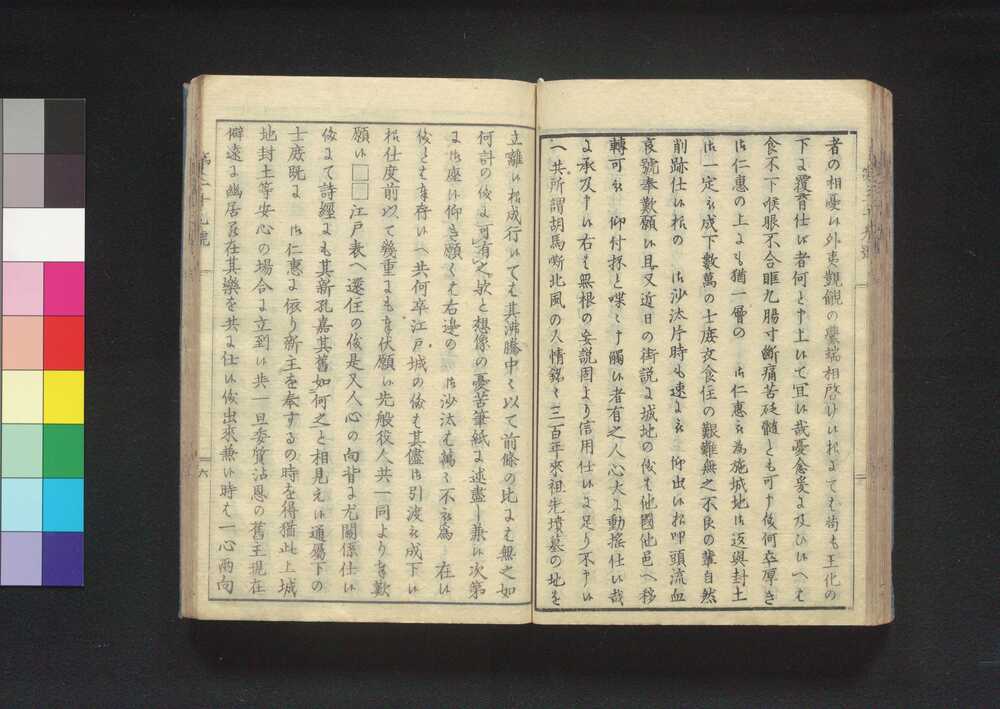 者の相憂い外夷覬覦の釁端相啓けい様よても苟も王化の
下よ覆育仕い者何と申上いて宜い哉憂念爰よ及ひいへも
食不下喉眼不合眶九腸寸斷痛苦砭髓とも可申儀何卒厚き
御仁惠の上よも猶一層の　御仁惠被為施城地御返與封土
御一定被成下數萬の士庶衣食住の艱難無之不良の輩自然
削跡仕い様の　御沙汰片時も速よ被　仰出い様叩頭流血
哀號奉歎願い且又近日の街説よ城地の儀も他國他邑へ移
轉可被　仰付抔と喋々申觸い者有之人心大よ動搖仕い哉
よ承及申い右も無根の妄説固より信用仕いよ足り不申い
へ共所謂胡馬嘶北風の人情銘々三百年來祖先墳墓の地を
立離い様成行いても其沸騰中々以て前條の比よも無之如
何計の儀よ可有之哉と想像の憂苦筆紙よ述盡し兼い次第
よ御座い仰き願くも右邊の　御沙汰も萬々不被為　在い
儀とも奉存いへ共何卒江戸城の儀も其儘御引渡被成下い
様仕度前以て幾重よも奉伏願い先般役人共一同より奉歎
願い□□江戸表へ還住の儀是又人心の向背よ尤關係仕い
儀よて詩經よも其新孔嘉其舊如何之と相見えい通屬下の
士庶既よ　御仁惠よ依り新主を奉するの時を得猶此上城
地封土等安心の場合よ立到い共一旦委質沾恩の舊主現在
僻遠よ幽居罷在其樂を共よ仕い儀出來兼い時も一心兩向
六